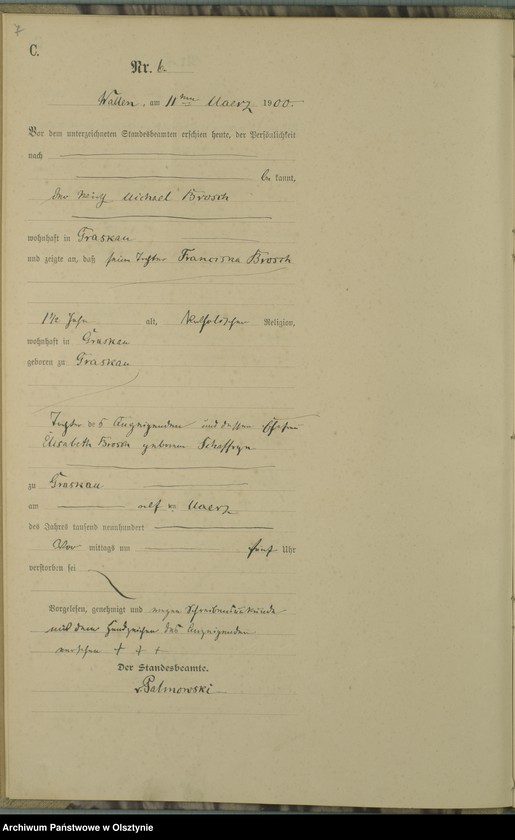 7
C.
Nr. 6.
Wallen, am 11ten Maerz 1900.
Vor dem unterzeichneten Standesbeamten erschien heute, der Persönlichkeit
nach
be kannt,
der Michael Brosch
wohnhaft in Graskau
und zeigte an, daß seine Tochter Franciska Brosch
1 1/2 Jahr alt, katholischer Religion,
wohnhaft in Graskau
geboren zu Graskau
Tochter des Anzeigenden und dessen Ehefrau
Elisabeth Brosch geborene
zu Graskau
am elf Maerz
des Jahres tausend neunhundert
Vor mittags um fünf Uhr
verstorben sei
Vorgelesen, genehmigt und wegen Schreibensunkunde
mit dem Handzeichen des Anzeigenden
versehen + + +
Der Standesbeamte.
v. Palmowski
Archiwum Państwowe w Olsztynie